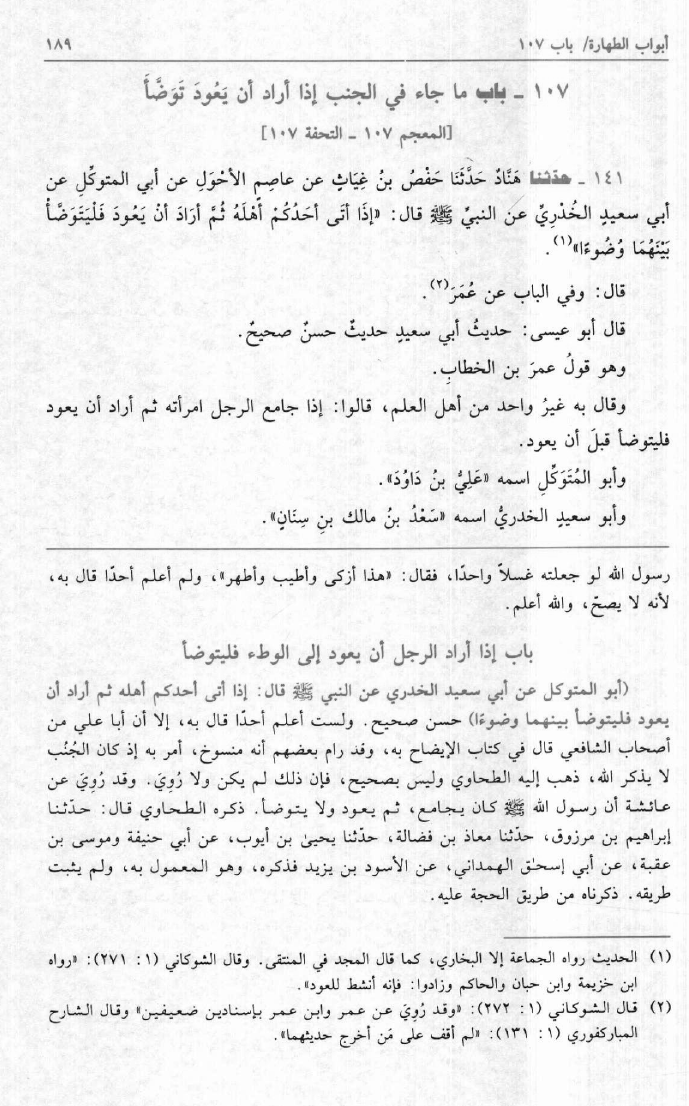 أبواب الطهارة/ باب ١٠٧
١٨٩
١٠٧ ـ باب ما جاء في الجنب إذا أراد أن يَعُودَ تَوَضَّأَ
[المعجم ١٠٧ ـ التحفة ١٠٧]
١٤١ ـ حدّثنا هَنَّادٌ حَدَّثَنَا حَفْصُ بنُ غِيَاثٍ عن عاصِمٍ الأحْوَلِ عن أبي المتوكِّلِ عن
أبي سعيدٍ الخُدْرِيِّ عن النبيِّ ﷺ قال: «إذَا أتَى أحَدُكُمْ أهْلَهُ ثُمَّ أرَادَ أنْ يَعُودَ فَلْيَتَوَضَّأْ
بَيْنَهُمَا وُضُوءًا»(١).
قال: وفي الباب عن عُمَرَ(٢).
قال أبو عيسى: حديثُ أبي سعيدٍ حديثٌ حسنٌ صحيحٌ.
وهو قولُ عمرَ بن الخطابِ.
وقال به غيرُ واحد من أهل العلم، قالوا: إذا جامع الرجل امرأته ثم أراد أن يعود
فليتوضأ قبلَ أن يعود.
وأبو المُتَوَكِّلِ اسمه «عَلِيُّ بنُ دَاوُدَ».
وأبو سعيدٍ الخدريُّ اسمه «سَعْدُ بنُ مالك بنِ سِنَانٍ».
رسول الله لو جعلته غسلاً واحدًا، فقال: «هذا أزكى وأطيب وأطهر»، ولم أعلم أحدًا قال به،
لأنه لا يصحّ، والله أعلم.
باب إذا أراد الرجل أن يعود إلى الوطء فليتوضأ
(أبو المتوكل عن أبي سعيد الخدري عن النبي ﷺ قال: إذا أتى أحدكم أهله ثم أراد أن
يعود فليتوضأ بينهما وضوءًا) حسن صحيح. ولست أعلم أحدًا قال به، إلا أن أبا علي من
أصحاب الشافعي قال في كتاب الإيضاح به، وقد رام بعضهم أنه منسوخ، أمر به إذ كان الجُنُب
لا يذكر الله، ذهب إليه الطحاوي وليس بصحيح، فإن ذلك لم يكن ولا رُوِيَ. وقد رُوِيَ عن
عائشة أن رسول الله ﷺ كان يجامع، ثم يعود ولا يتوضأ. ذكره الطحاوي قال: حدّثنا
إبراهيم بن مرزوق، حدّثنا معاذ بن فضالة، حدّثنا يحيىٰ بن أيوب، عن أبي حنيفة وموسى بن
عقبة، عن أبي إسحـٰق الهمداني، عن الأسود بن يزيد فذكره، وهو المعمول به، ولم يثبت
طريقه. ذكرناه من طريق الحجة عليه.
(١) الحديث رواه الجماعة إلا البخاري، كما قال المجد في المنتقى. وقال الشوكاني (١ : ٢٧١): «رواه
ابن خزيمة وابن حبان والحاكم وزادوا: فإنه أنشط للعود».
(٢) قال الشوكاني (١ : ٢٧٢): «وقد رُوِيَ عن عمر وابن عمر بإسنادين ضعيفين» وقال الشارح
المباركفوري (١ : ١٣١): «لم أقف على مَن أخرج حديثهما».